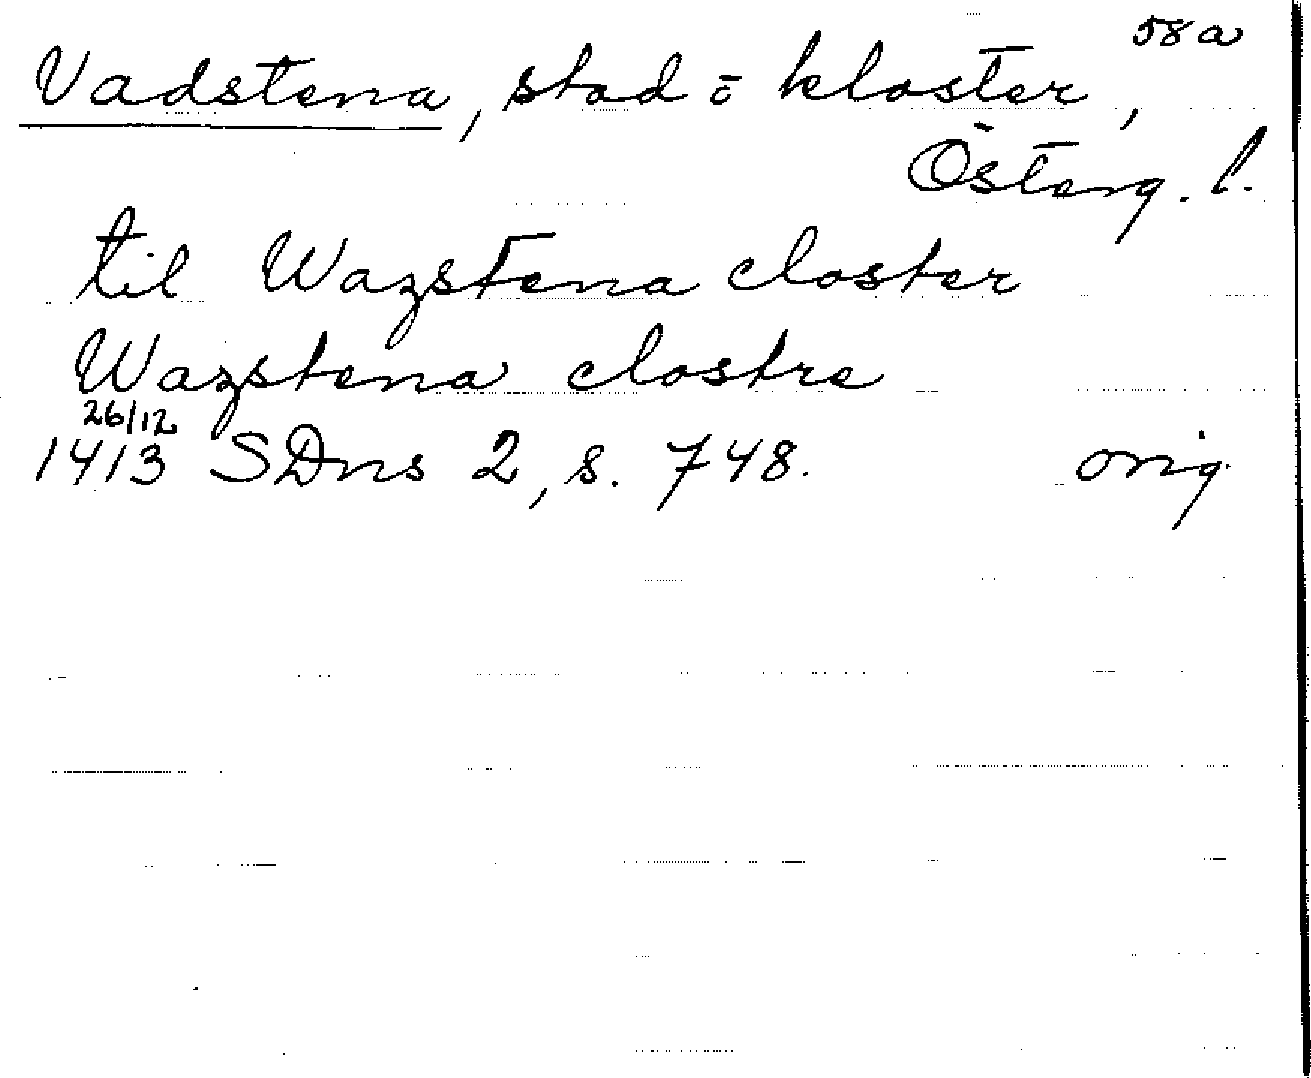 58a
Vadstena, stad o kloster,
Österg. l.
til Wazstena closter
Wazstena clostre
26/12
1413 SDns 2, s. 748. orig.